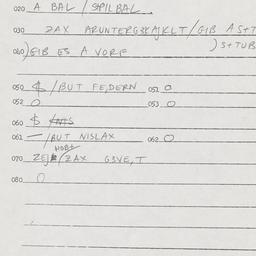 020 A BAL / SAPILBAL
030 ZAX ARUNTERGBKAJKLT / GIB A S+T
) S+TUB
040 / GIB ES A VORF
050 $ / BUT FE,DERN 051 0
052 0 053 0
060 $
061 — / BUT NISLAX 062 0
070 / ZAX GBVE,T
080 0